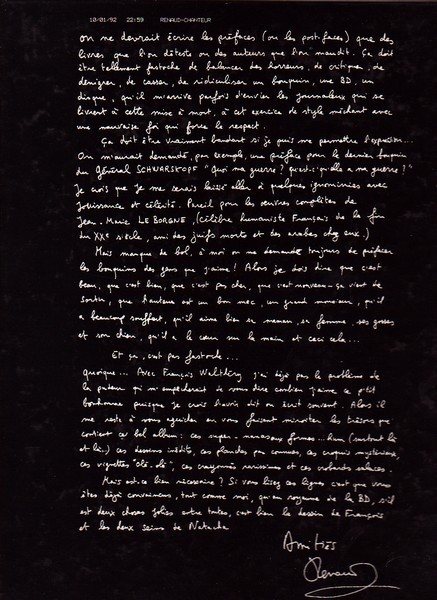 10/01/92 22:59 RENAUD-CHANTEUR
On ne devrait écrire les préfaces (ou les postfaces) que des
livres que l'on déteste ou des auteurs que l'on maudit. Ça doit
être tellement fastoche de balancer des horreurs, de critiquer, de
dénigrer, de casser, de ridiculiser un bouquin, une BD, un
disque, qu'il m'arrive parfois d'envier les journaleux qui se
livrent à cette mise à mort, à cet exercice de style méchant avec
une mauvaise foi qui force le respect.
Ça doit être vraiment bandant si je puis me permettre l'expression...
On m'aurait demandé, par exemple, une préface pour le dernier bouquin
du Général SCHWARSKOPF "Quoi ma guerre? Qu'est-c'qu'elle a ma guerre?"
Je crois que je me serais laissé aller à quelques ignominies avec
jouissance et célérité. Pareil pour les œuvres complètes de
Jean-Marie LE BORGNE, (célèbre humaniste Français de la fin
du XXe siècle, ami des juifs morts et des arabes chez eux.)
Mais manque de bol, à moi on me demande toujours de préfacer
les bouquins des gens que j'aime! Alors je dois dire que c'est
beau, que c'est bien, que c'est pas cher, que c'est nouveau-ça vient de
sortir, que l'auteur est un bon mec, un grand monsieur, qu'il
a beaucoup souffert, qu'il aime bien sa maman, sa femme, ses gosses
et son chien, qu'il a le cœur sur la main et ceci cela...
Et ça, c'est pas fastoche...
Quoique... Avec François Walthéry j'ai déjà pas le problème de
la pudeur qui m'empêcherait de vous dire combien j'aime ce p'tit
bonhomme puisque je crois l'avoir dit ou écrit souvent. Alors il
me reste à vous aguicher en vous faisant miroiter les trésors que
contient ce bel album: ces super-nanas aux formes... hum (surtout là
et là..) ces dessins inédits, ces planches peu connues, ces croquis mystérieux,
ces vignettes "olé-olé", ces crayonnés rarissimes et ces
Mais est-ce bien nécessaire? Si vous lisez ces lignes c'est que vous
êtes déjà convaincus, tout comme moi, qu'au royaume de la BD, s'il
est deux choses jolies entre toutes, c'est bien le dessin de François
et les deux seins de Natacha
Amitiés
Renaud